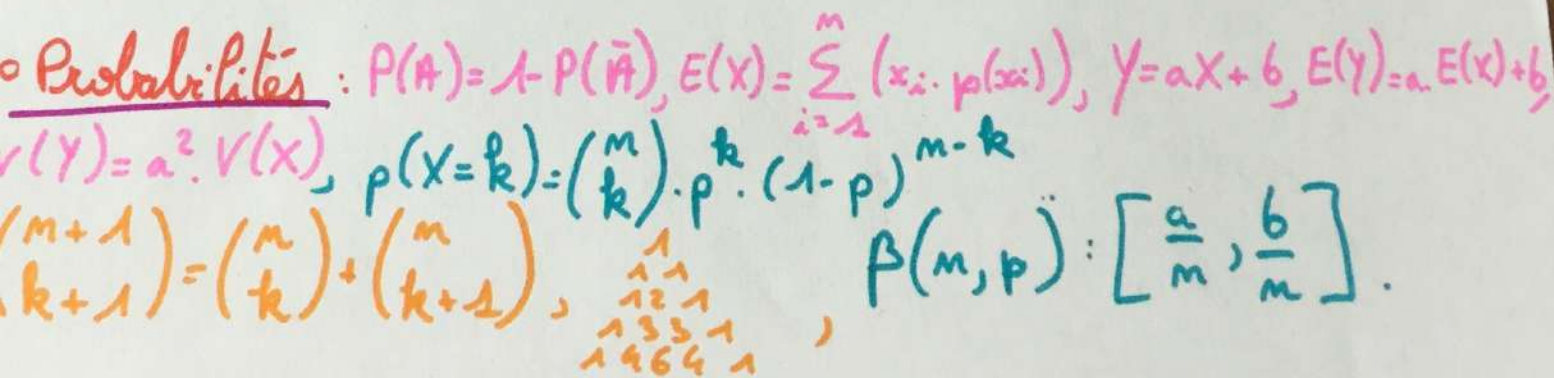 • Probabilités : P(A) = 1 - P(Ā), E(X) = ∑_{i=1}^{n} (x_i . p(x_i)), Y = aX + b, E(Y) = a. E(X) + b,
V(Y) = a². V(X), p(X = k) = (n k) . p^k . (1 - p)^{n - k}
(n + 1 k + 1) = (n k) + (n k + 1), 1 , β(n, p) : [a/n, b/n].
1 1
1 2 1
1 3 3 1
1 4 6 4 1